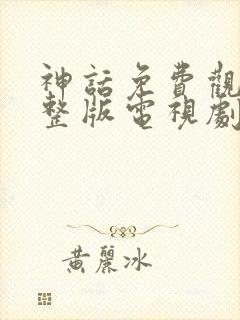 神話免費觀
整版電視劇
黃麗冰